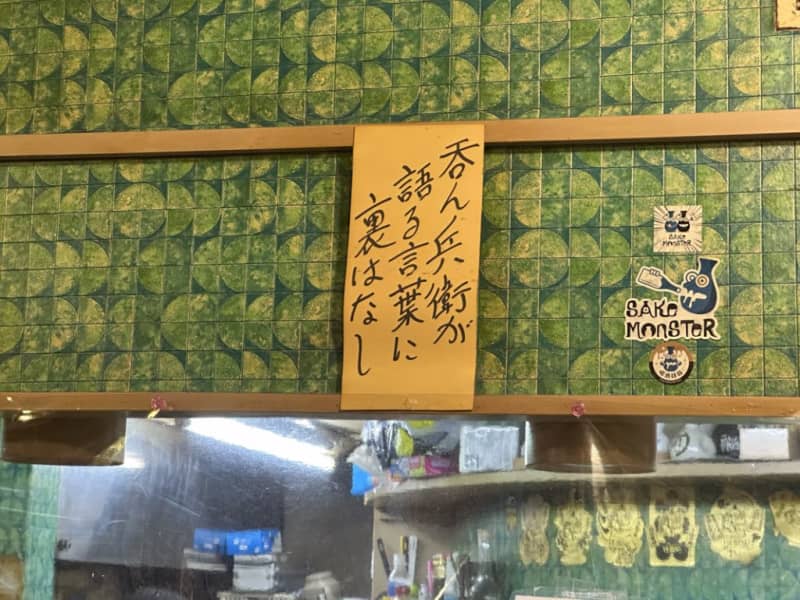 呑ん兵衛が
語る言葉に
裏はなし
SAKE
MONSTER
SAKE
MONSTER